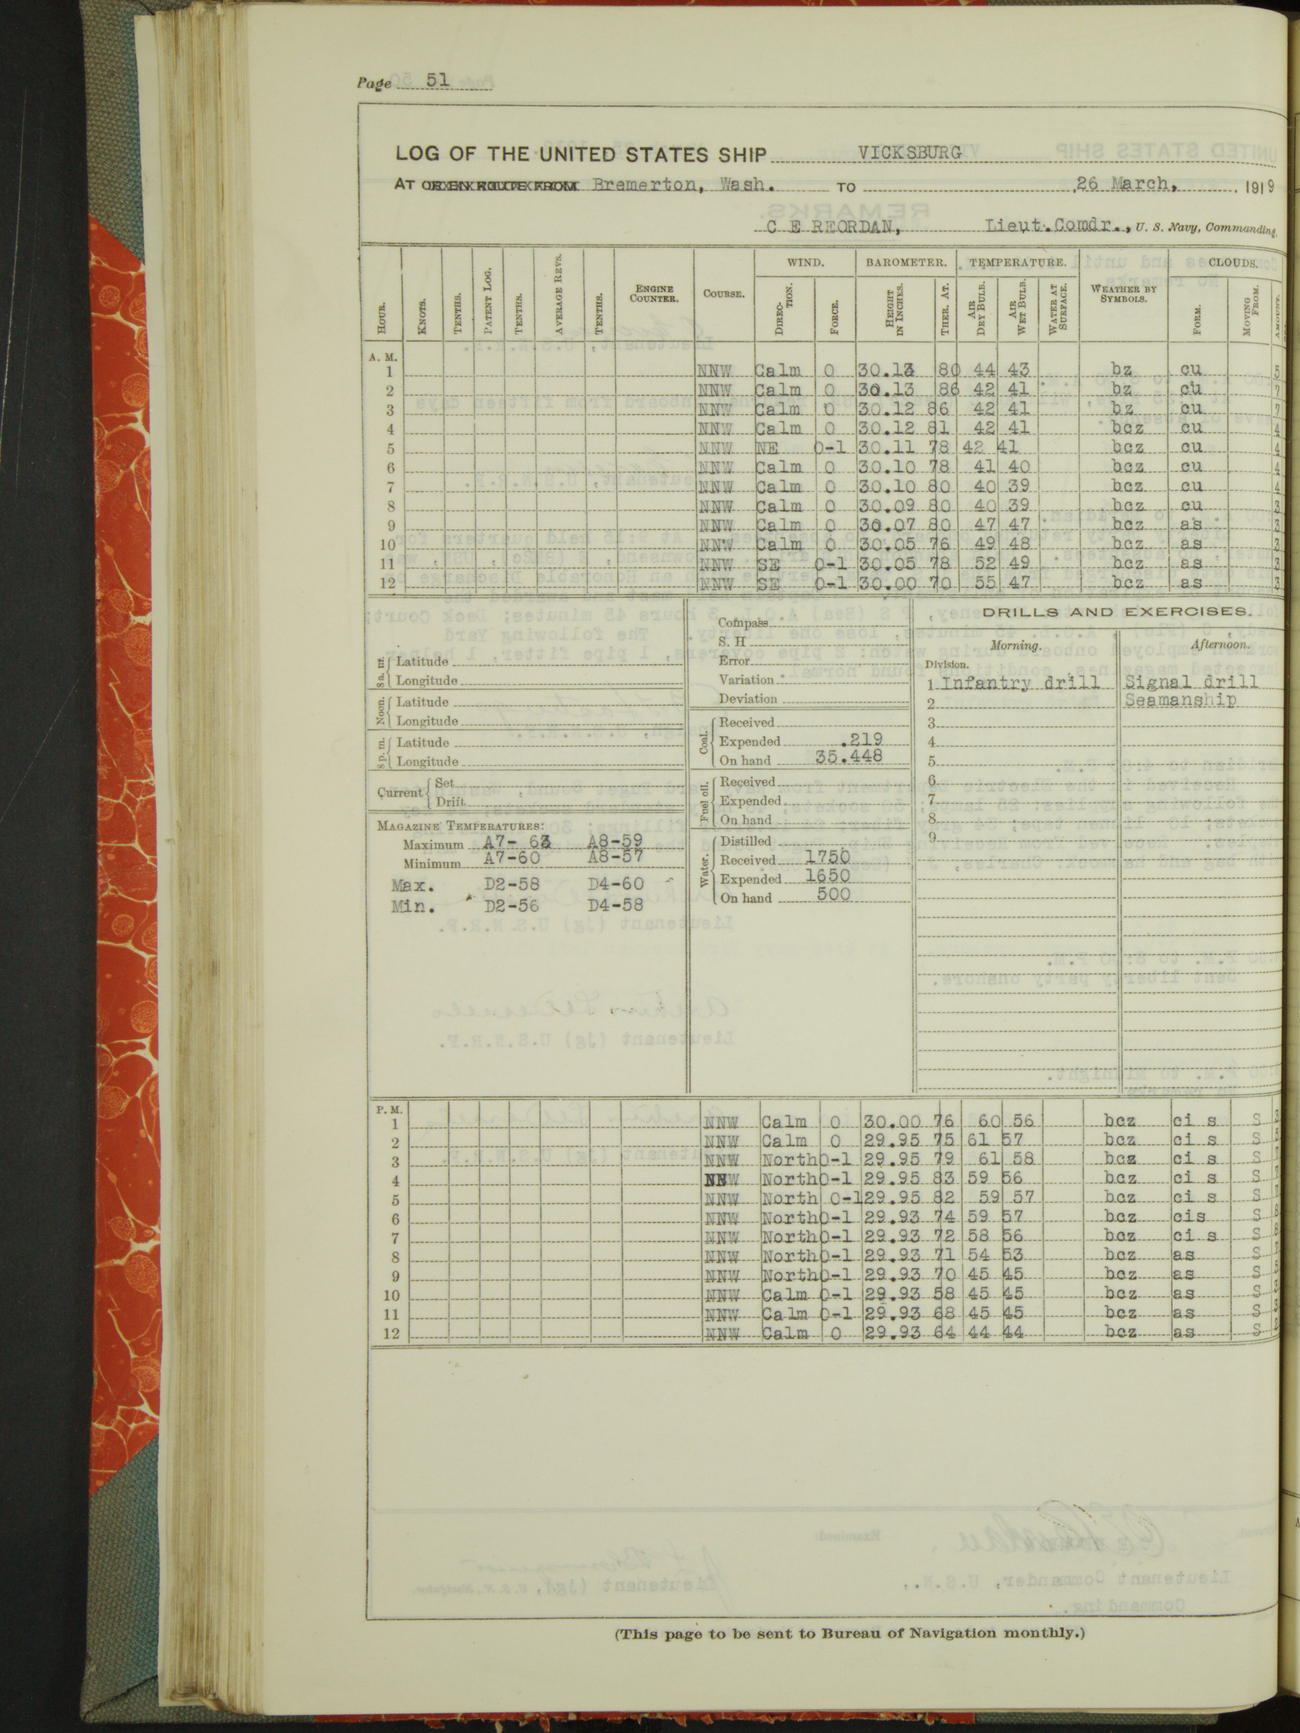 Page 51
LOG OF THE UNITED STATES SHIP VICKSBURG
AT OR EN ROUTE FROM Bremerton, Wash. TO 26 March, 1919
C E REORDAN, Lieut.Comdr., U. S. Navy, Commanding.
WIND. BAROMETER. TEMPERATURE. CLOUDS.
HOUR. KNOTS. TENTHS. PATENT LOG. TENTHS. AVERAGE REVS. TENTHS. ENGINE COUNTER. COURSE. DIRECTION. FORCE. HEIGHT IN INCHES. THER. AT. AIR DRY BULB. AIR WET BULB. WATER AT SURFACE. WEATHER BY SYMBOLS. FORM. MOVING FROM.
A. M.
1 NNW Calm 0 30.13 80 44 43 bz cu 5
2 NNW Calm 0 30.13 86 42 41 bz cu 7
3 NNW Calm 0 30.12 86 42 41 bz cu 7
4 NNW Calm 0 30.12 81 42 41 bcz cu 4
5 NNW NE 0-1 30.11 78 42 41 bcz cu 4
6 NNW Calm 0 30.10 78 41 40 bcz cu 4
7 NNW Calm 0 30.10 80 40 39 bcz cu 4
8 NNW Calm 0 30.09 80 40 39 bcz cu 3
9 NNW Calm 0 30.07 80 47 47 bcz as 3
10 NNW Calm 0 30.05 76 49 48 bcz as 3
11 NNW SE 0-1 30.05 78 52 49 bcz as 3
12 NNW SE 0-1 30.00 70 55 47 bcz as 3
8 a. m. Latitude
Longitude
Noon Latitude
Longitude
8 p. m. Latitude
Longitude
Current Set
Drift
MAGAZINE TEMPERATURES:
Maximum A7- 63 A8-59
Minimum A7-60 A8-57
Max. D2-58 D4-60
Min. D2-56 D4-58
Compass
S. H
Error
Variation
Deviation
Coal. Received
Expended .219
On hand 35.448
Fuel oil. Received
Expended
On hand
Water. Distilled
Received 1750
Expended 1650
On hand 500
DRILLS AND EXERCISES.
Morning. Afternoon.
Division.
1 Infantry drill Signal drill
2 Seamanship
3
4
5
6
7
8
9
P. M.
1 NNW Calm 0 30.00 76 60 56 bcz ci s S
2 NNW Calm 0 29.95 75 61 57 bcz ci s S
3 NNW North 0-1 29.95 79 61 58 bcz ci s S
4 NNW North 0-1 29.95 83 59 56 bcz ci s S
5 NNW North 0-1 29.95 82 59 57 bcz ci s S
6 NNW North 0-1 29.93 74 59 57 bcz cis S
7 NNW North 0-1 29.93 72 58 56 bcz ci s S
8 NNW North 0-1 29.93 71 54 53 bcz as S
9 NNW North 0-1 29.93 70 45 45 bcz as S
10 NNW Calm 0-1 29.93 58 45 45 bcz as S
11 NNW Calm 0-1 29.93 68 45 45 bcz as S
12 NNW Calm 0 29.93 64 44 44 bcz as S
(This page to be sent to Bureau of Navigation monthly.)